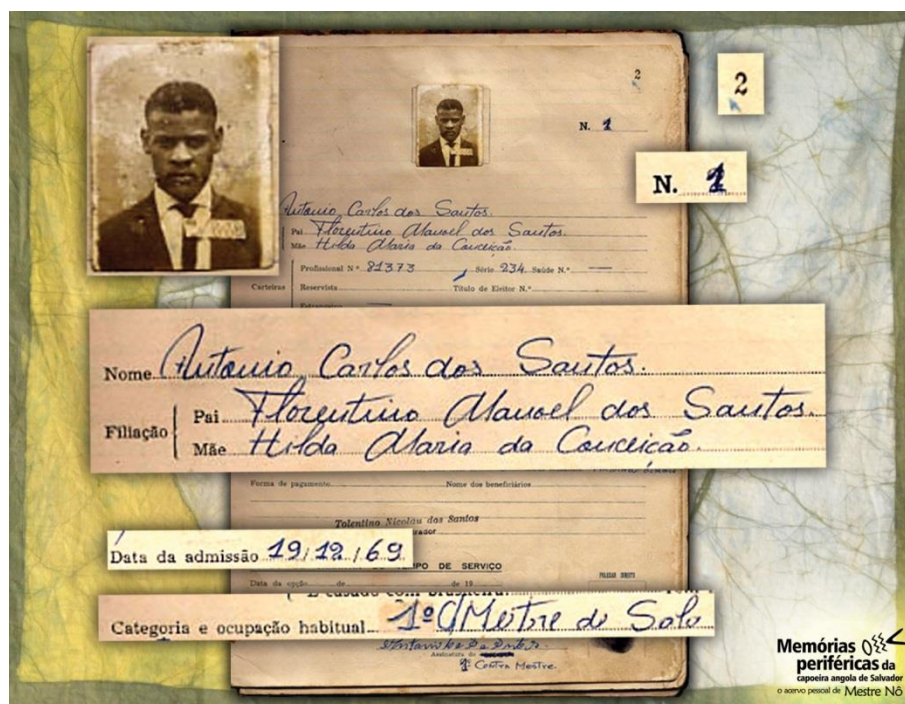 2
2
N. 1
N. 1
Antonio Carlos dos Santos.
Pai Florentino Manoel dos Santos.
Mãe Hilda Maria da Conceição.
Profissional N.º 81373 Série 234 Saúde N.º
Carteiras Reservista Título de Eleitor N.º
Estrangeiro
Nome Antonio Carlos dos Santos.
Filiação Pai Florentino Manoel dos Santos.
Mãe Hilda Maria da Conceição.
Forma de pagamento Nome dos beneficiários
Tolentino Nicolau dos Santos
Data da admissão 19/12/69
PO DE SERVIÇO
Data da opção de de 19
Categoria e ocupação habitual 1º C/Mestre de Solo
Assinatura do
1º Contra Mestre.
Memórias
periféricas da
capoeira angola de Salvador
o acervo pessoal de Mestre Nô